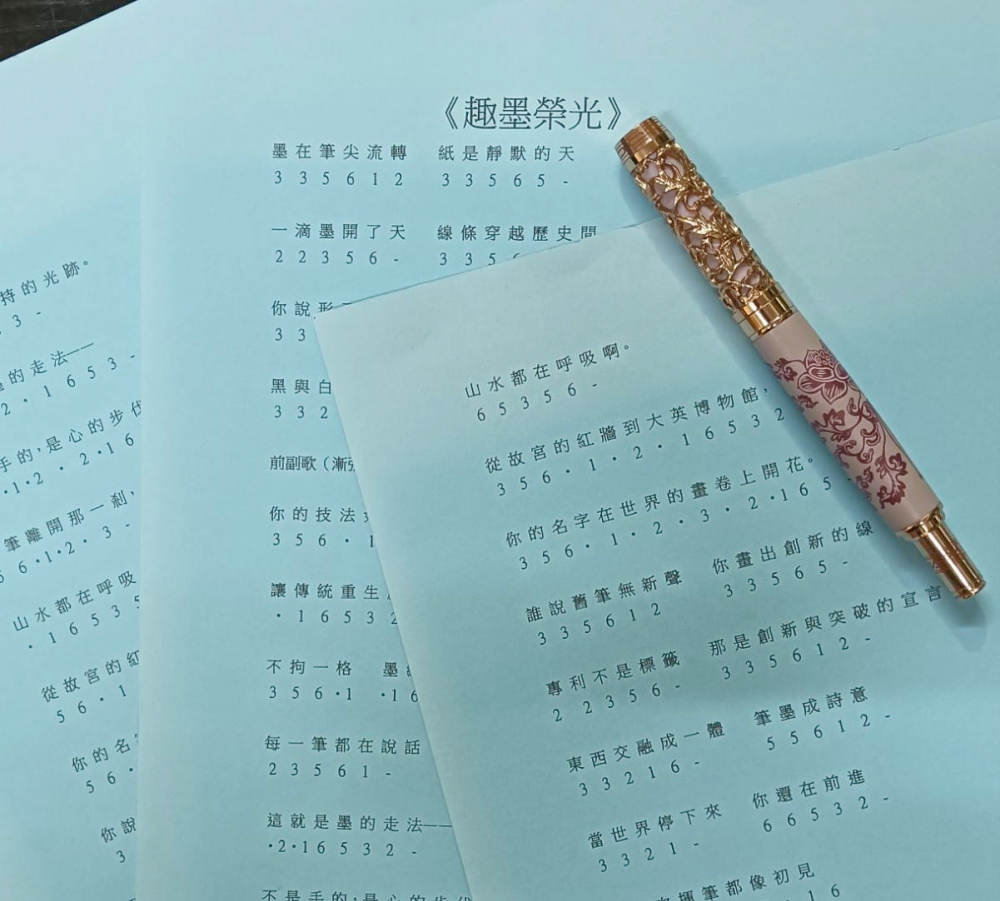 《趣墨榮光》
墨在筆尖流轉 紙是靜默的天
3 3 5 6 1 2 3 3 5 6 5 -
一滴墨開了天 線條穿越歷史間
2 2 3 5 6 - 3 3 5 6
你說形
3 3
黑與白
3 3 2
前副歌（漸強
你的技法
3 5 6 · 1
讓傳統重生
· 1 6 5 3 2
不拘一格 墨
3 5 6 ·1 ·1 6
每一筆都在說話
2 3 5 6 1 -
這就是墨的走法——
·2·1 6 5 3 2 -
不是手的,是心的步伐
持的光跡。
3 -
的走法——
2 · 1 6 5 3 -
手的,是心的步伐
·1·2 · 2·1 6
筆離開那一剎,
6·1·2· 3 ·
山水都在呼吸
· 1 6 5 3 5
從故宮的紅
5 6 · 1
你的名
5 6 ·
你說
3
山水都在呼吸啊。
6 5 3 5 6 -
從故宮的紅牆到大英博物館,
3 5 6 · 1 · 2 · 1 6 5 3 2
你的名字在世界的畫卷上開花。
3 5 6 · 1 · 2 · 3 · 2 ·1 6 5 -
誰說舊筆無新聲 你畫出創新的線
3 3 5 6 1 2 3 3 5 6 5 -
專利不是標籤 那是創新與突破的宣言
2 2 3 5 6 - 3 3 5 6 1 2 -
東西交融成一體 筆墨成詩意
3 3 2 1 6 - 5 5 6 1 2 -
當世界停下來 你還在前進
3 3 2 1 - 6 6 5 3 2 -
揮筆都像初見
1 6